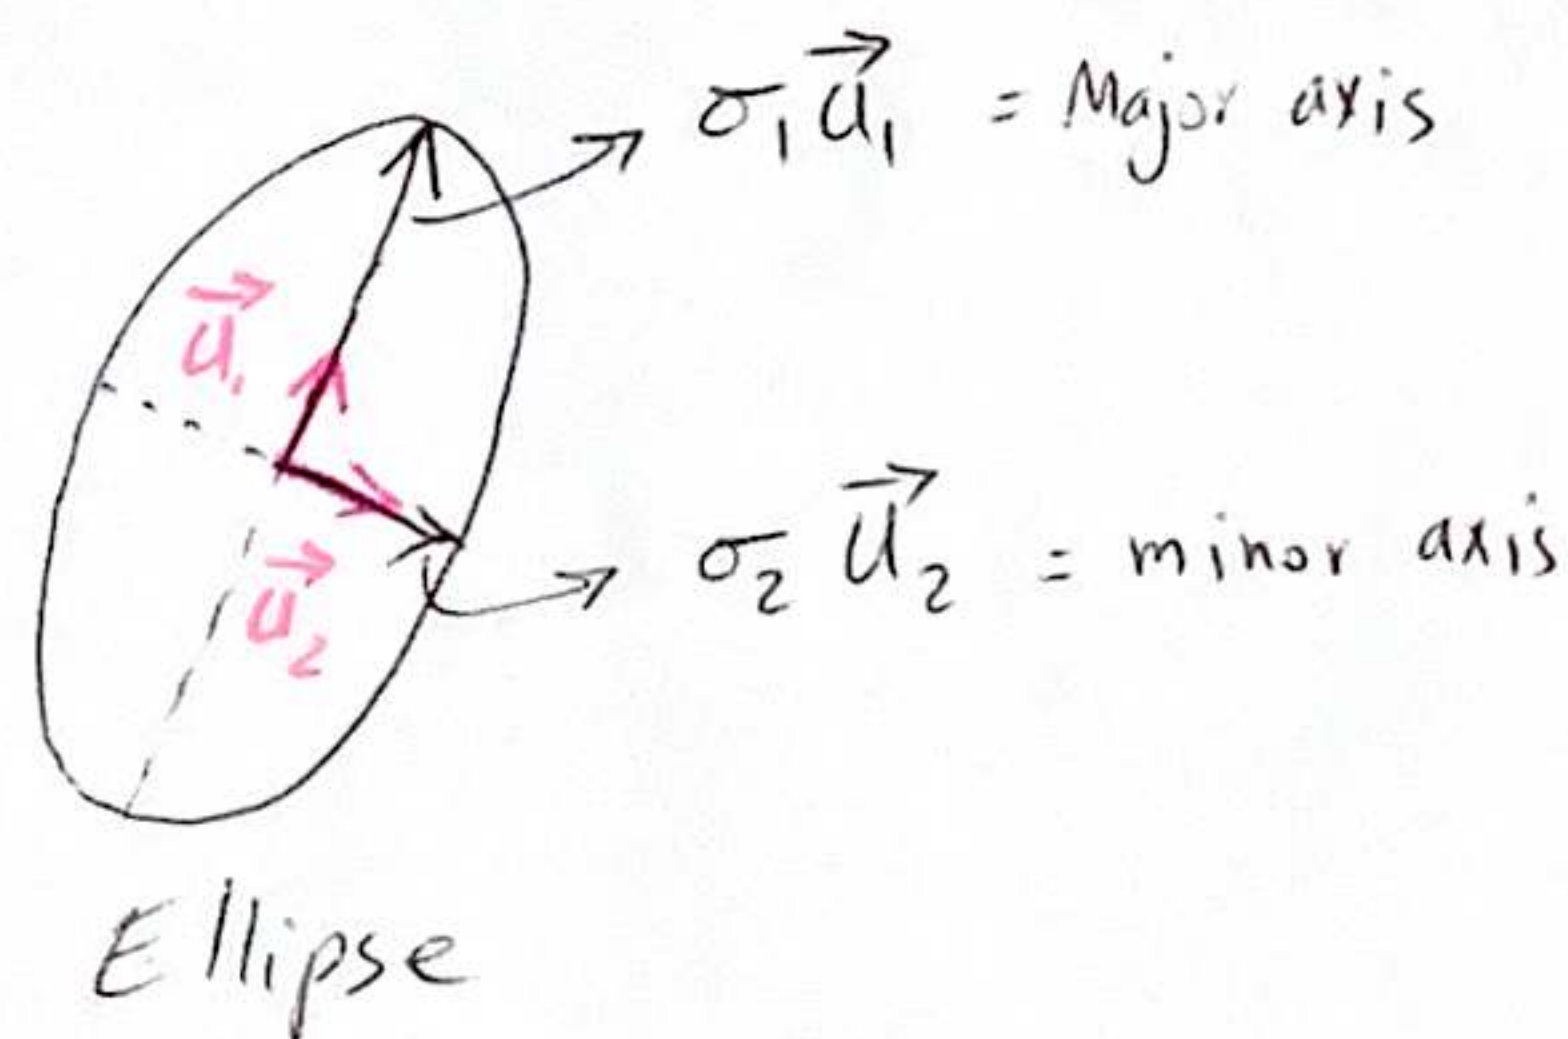 σ₁ u⃗₁ = Major axis
u⃗₁
σ₂ u⃗₂ = minor axis
u⃗₂
Ellipse